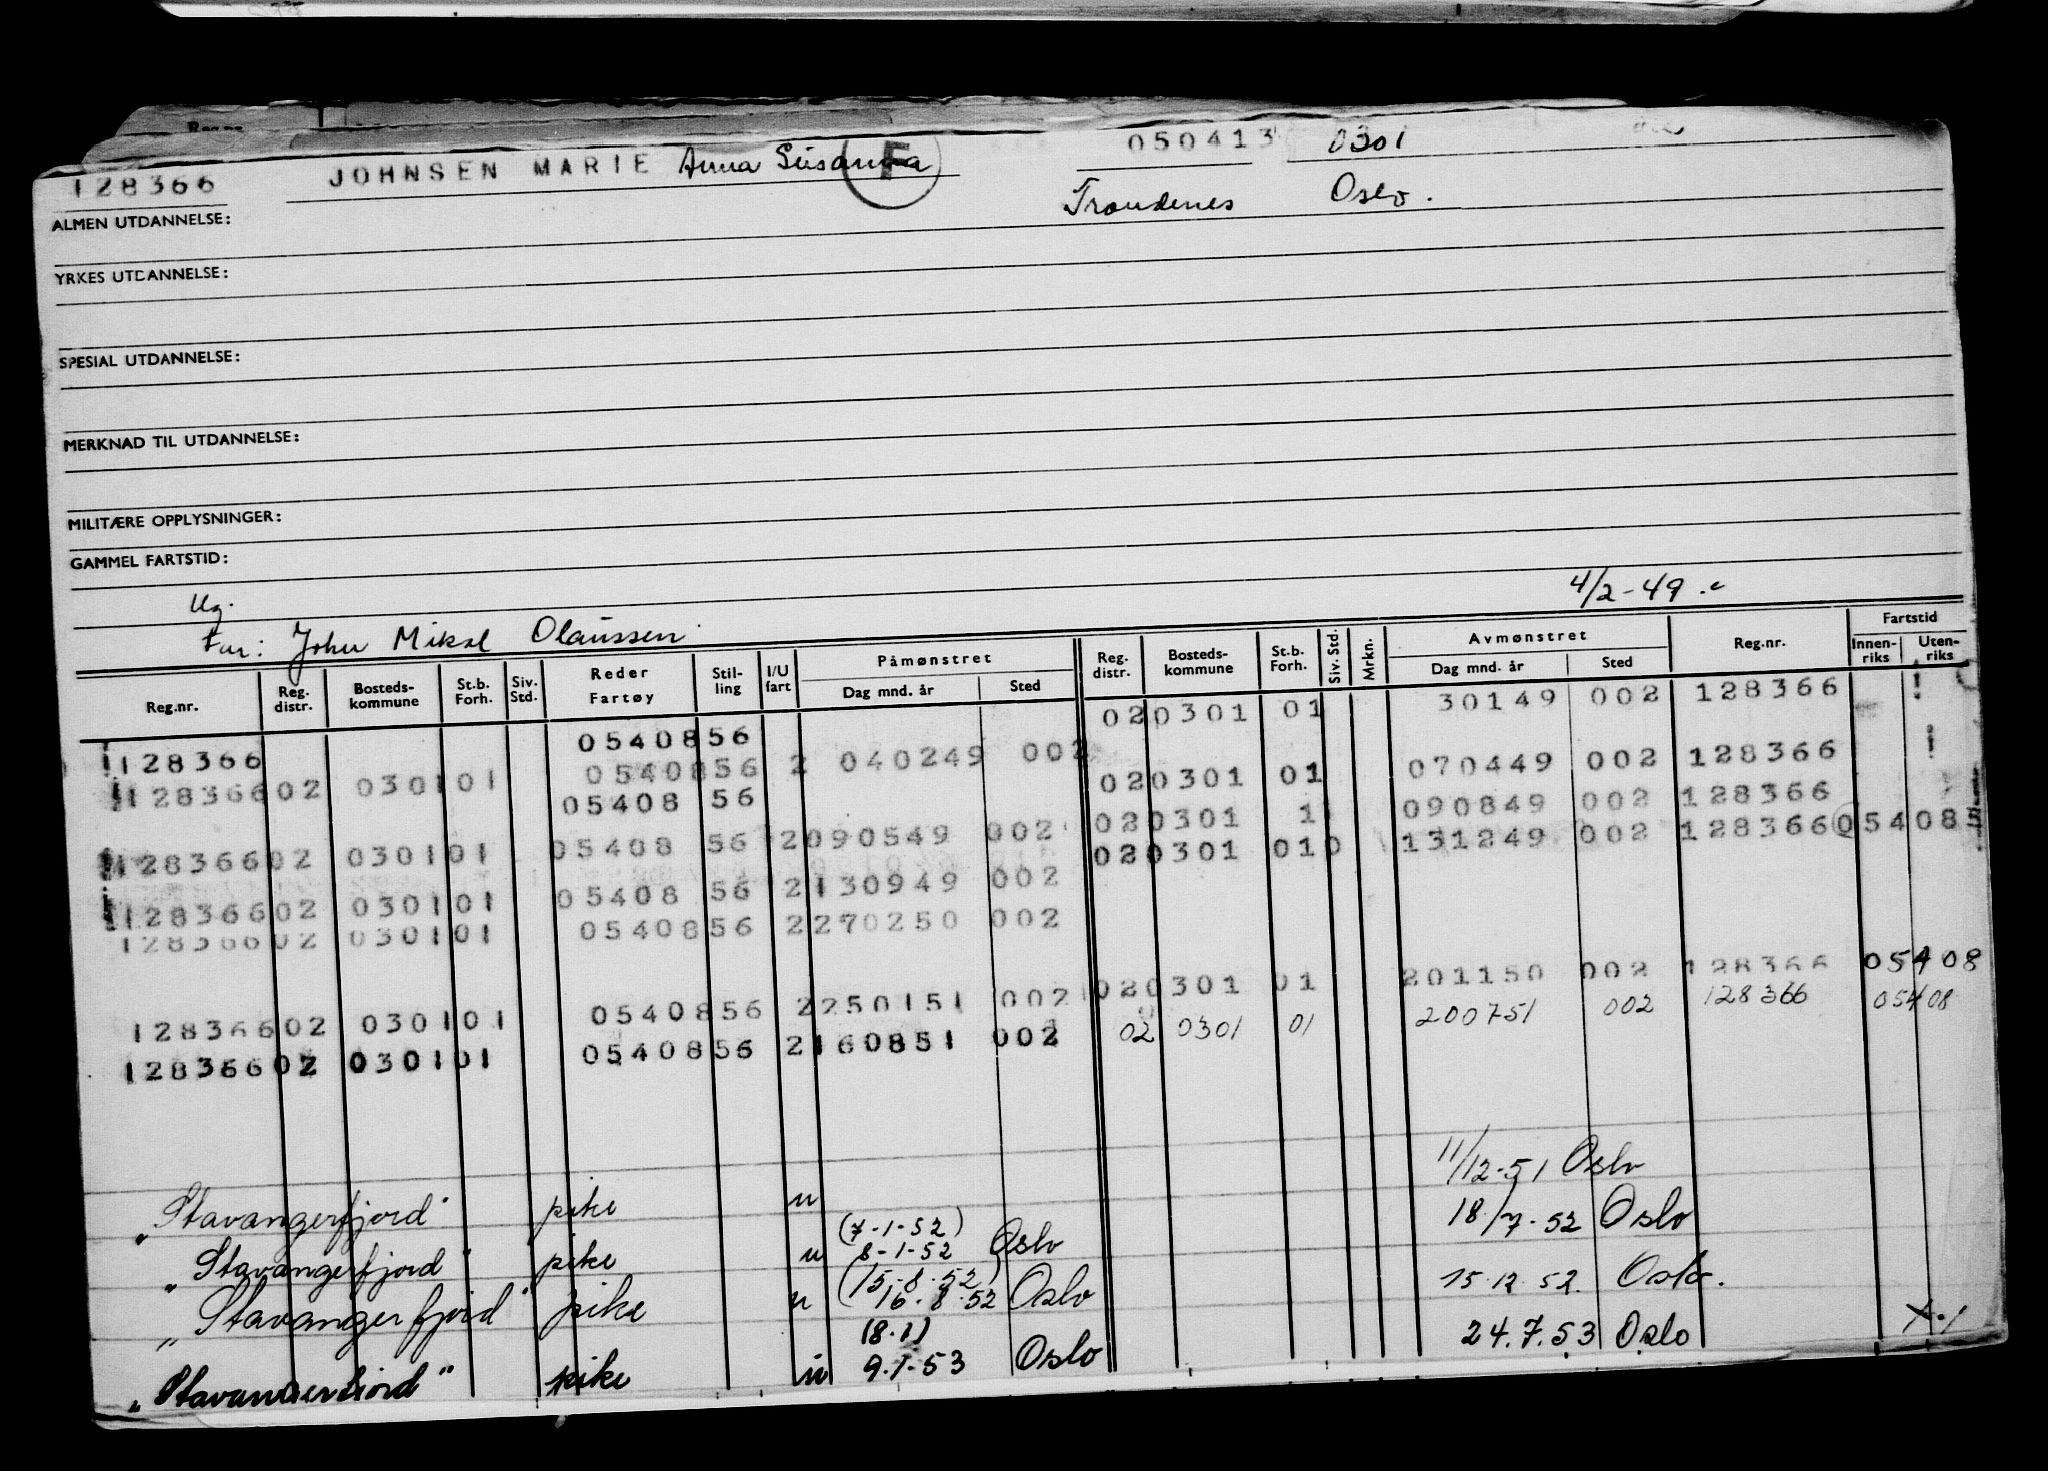 128366 JOHNSEN MARIE Anna Susanna F 050413 0301
Trondenes Oslo.
ALMEN UTDANNELSE:
YRKES UTDANNELSE:
SPESIAL UTDANNELSE:
MERKNAD TIL UTDANNELSE:
MILITÆRE OPPLYSNINGER:
GAMMEL FARTSTID:
Ug. 4/2-49.
Far: John Mikal Olaussen
Reg.nr. Reg. distr. Bosteds-kommune St.b. Forh. Siv. Std. Reder Fartøy Stil-ling I/U fart Påmønstret Dag mnd. år Sted Reg. distr. Bosteds-kommune St.b. Forh. Siv. Std. Mrkn. Avmønstret Dag mnd. år Sted Reg.nr. Fartstid Innen-riks Uten-riks
128366 05408 56 02 0301 01 30149 002 128366
128366 02 0301 01 05408 56 2 040249 002 02 0301 01 070449 002 128366
05408 56 02 0301 1 090849 002 128366
128366 02 0301 01 05408 56 2 090549 002 02 0301 010 131249 002 128366 05408
128366 02 0301 01 05408 56 2 130949 002
128366 02 0301 01 05408 56 2 270250 002
02 0301 01 201150 002 128366 05408
128366 02 0301 01 05408 56 2 250151 002 02 0301 01 200751 002 128366 05408
128366 02 0301 01 05408 56 2 160851 002
11/12-51 Oslo
"Stavangerfjord" pike u
(7-1-52) 18/7-52 Oslo
"Stavangerfjord" pike u 8-1-52 Oslo
(15-8.52) 15.12.52. Oslo.
"Stavangerfjord" pike u 16-8-52 Oslo
(8.1) 24.7.53 Oslo
"Stavangerfjord" pike u 9.1-53 Oslo